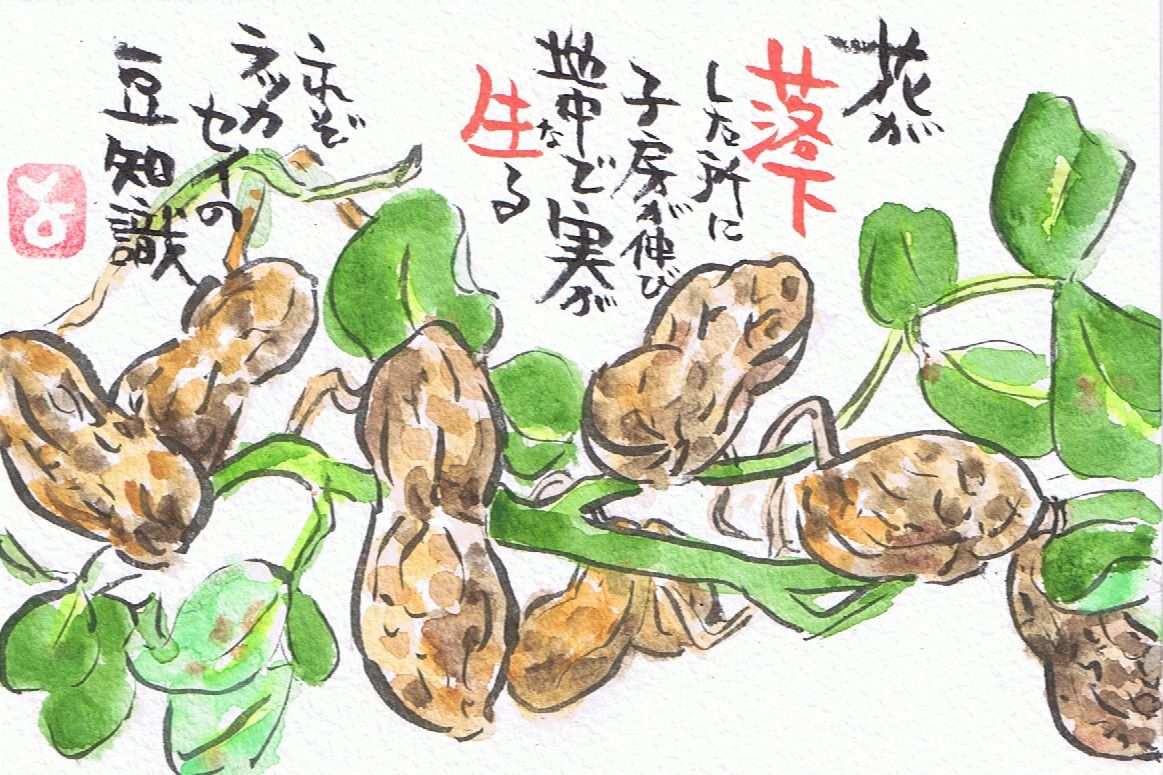 花が
落下
した所に
子房が伸び
地中で実が
な
生る
これぞ
ラッカ
セイの
豆知識